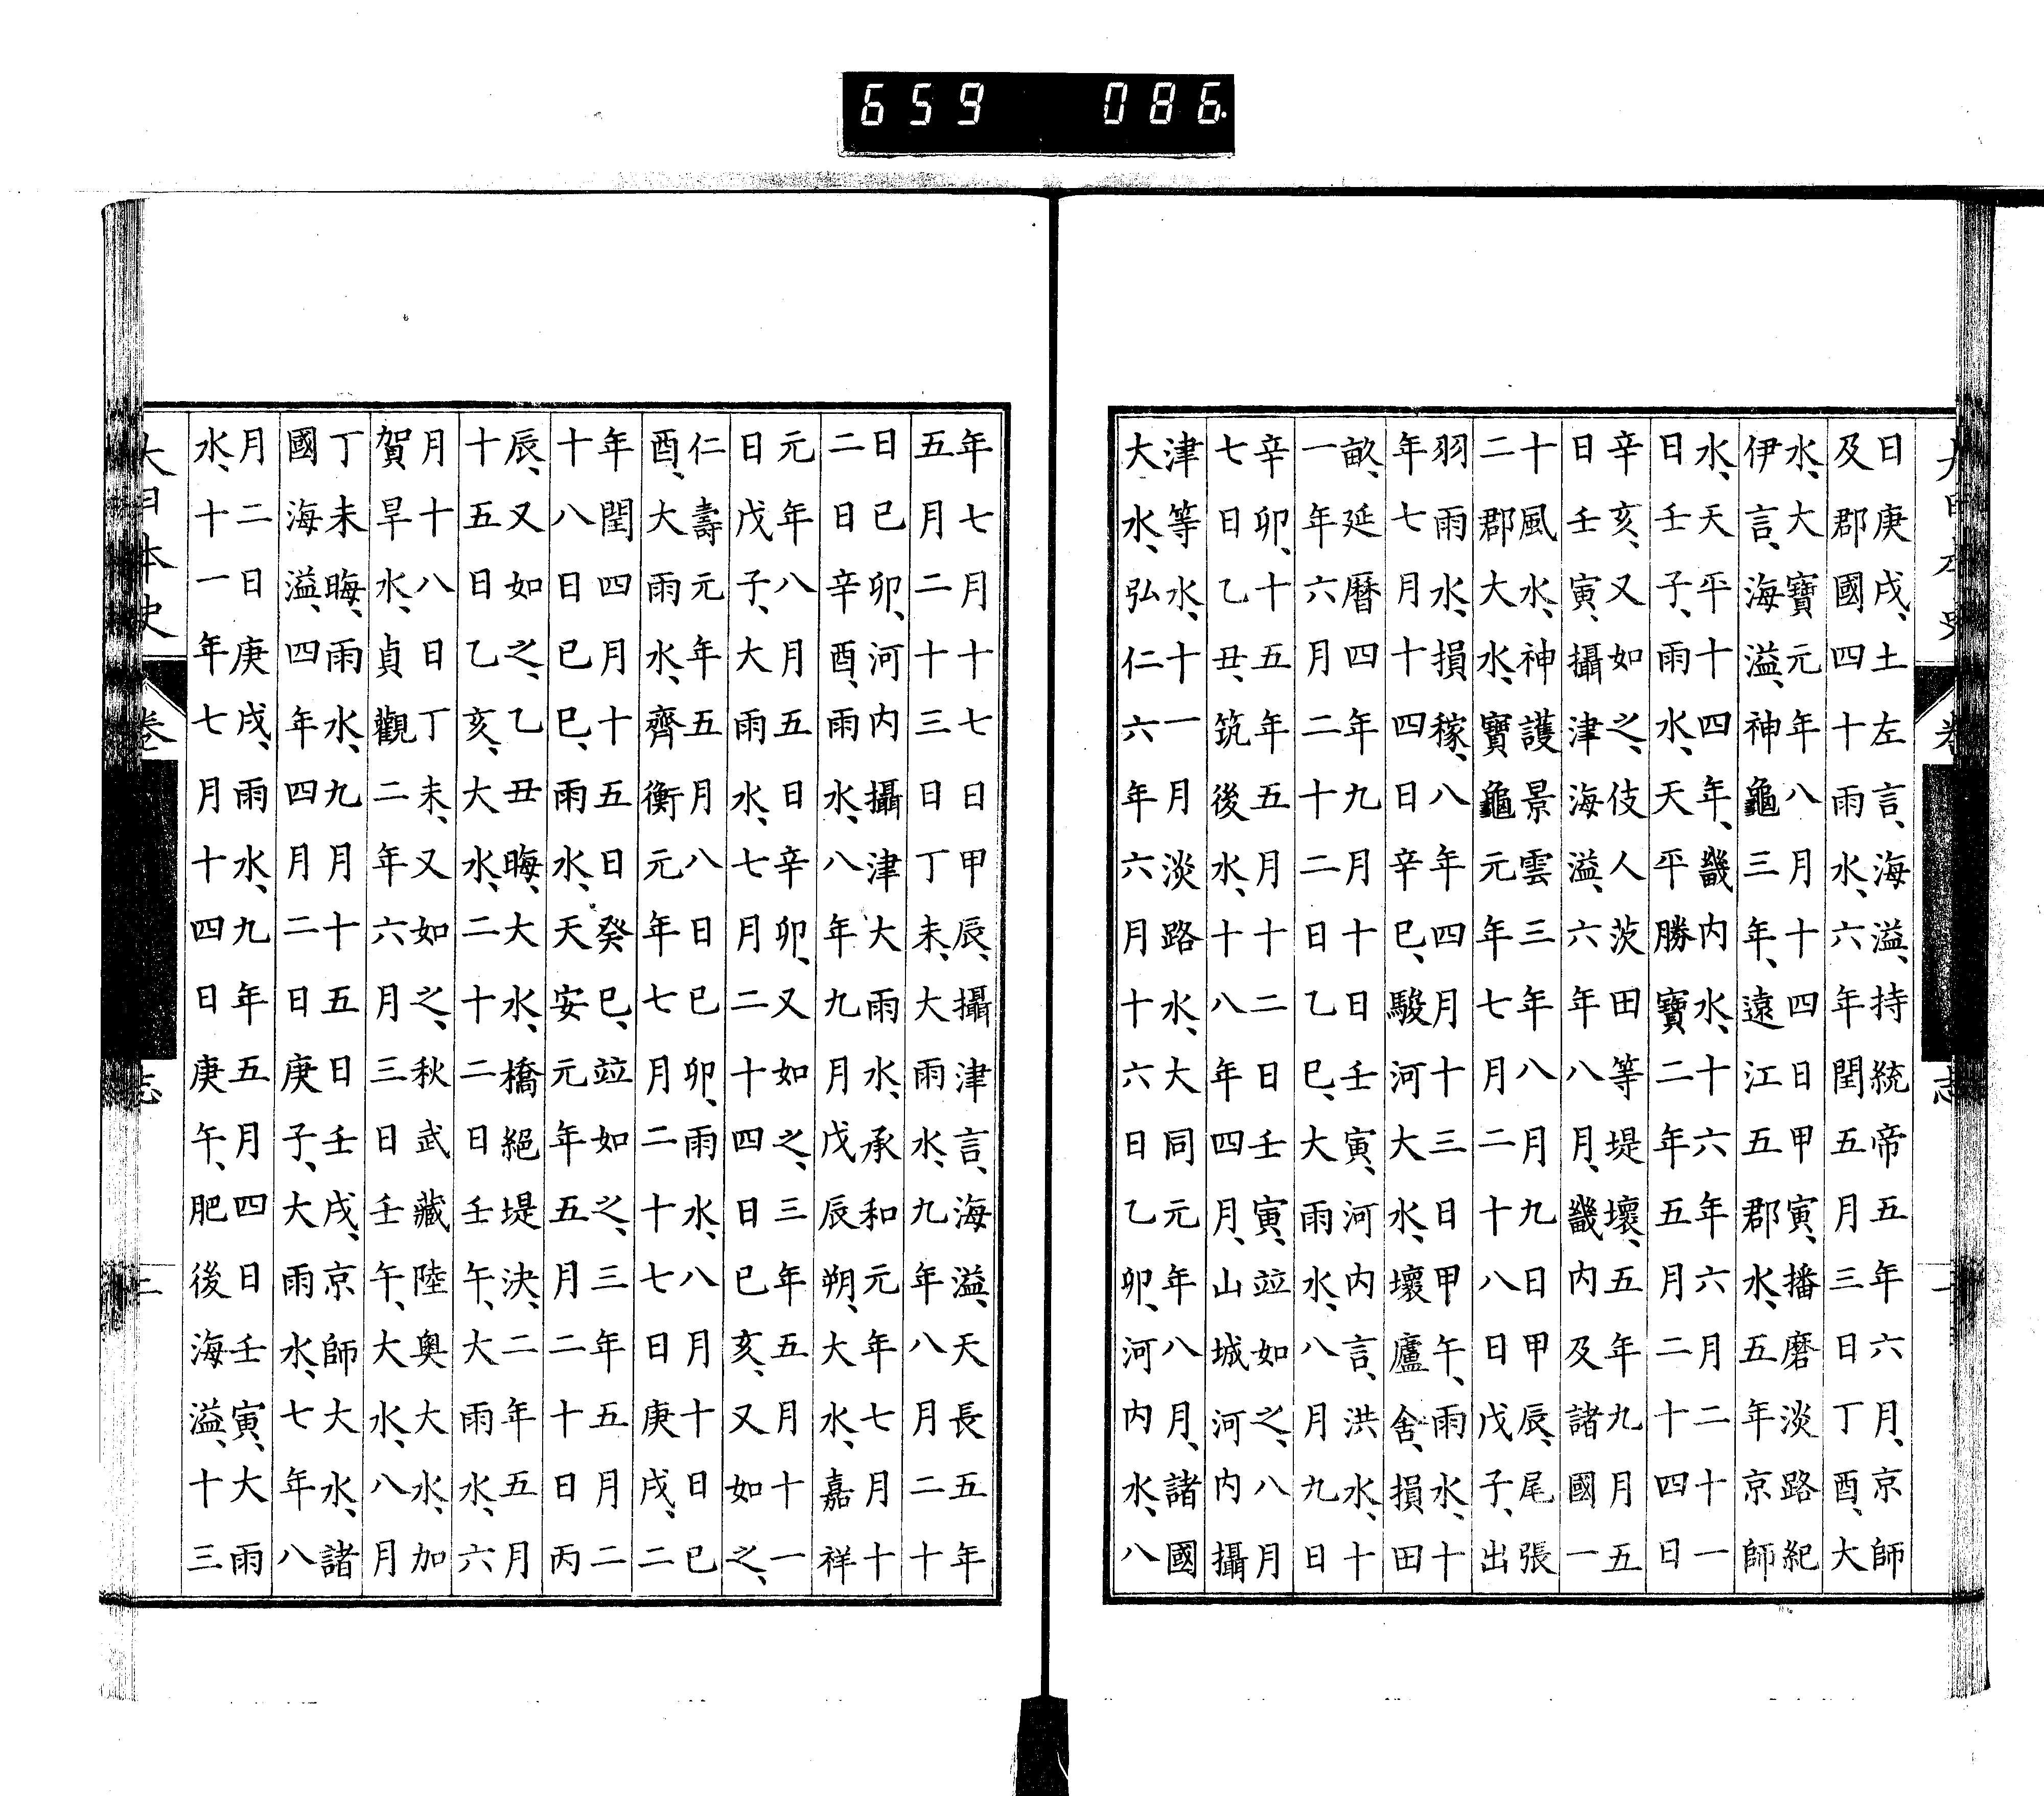 大日本史 卷 志
日庚戌、土左言、海溢、持統帝五年六月、京師
及郡國四十雨水、六年閏五月三日丁酉、大
水、大寶元年八月十四日甲寅、播磨淡路紀
伊言、海溢、神龜三年、遠江五郡水、五年京師
水、天平十四年、畿内水、十六年六月二十一
日壬子、雨水、天平勝寶二年五月二十四日
辛亥、又如之、伎人茨田等堤壞、五年九月五
日壬寅、攝津海溢、六年八月、畿内及諸國一
十風水、神護景雲三年八月九日甲辰、尾張
二郡大水、寶龜元年七月二十八日戊子、出
羽雨水、損稼、八年四月十三日甲午、雨水、十
年七月十四日辛巳、駿河大水、壞廬舍、損田
畝、延暦四年九月十日壬寅、河内言、洪水、十
一年六月二十二日乙巳、大雨水、八月九日
辛卯、十五年五月十二日壬寅、竝如之、八月
七日乙丑、筑後水、十八年四月、山城河内攝
津等水、十一月淡路水、大同元年八月、諸國
大水、弘仁六年六月十六日乙卯、河内水、八
年七月十七日甲辰、攝津言、海溢、天長五年
五月二十三日丁未、大雨水、九年八月二十
日己卯、河内攝津大雨水、承和元年七月十
二日辛酉、雨水、八年九月戊辰朔、大水、嘉祥
元年八月五日辛卯、又如之、三年五月十一
日戊子、大雨水、七月二十四日己亥、又如之、
仁壽元年五月八日己卯、雨水、八月十日己
酉、大雨水、齊衡元年七月二十七日庚戌、二
年閏四月十五日癸巳、竝如之、三年五月二
十八日己巳、雨水、天安元年五月二十日丙
辰、又如之、乙丑晦、大水、橋絕堤決、二年五月
十五日乙亥、大水、二十二日壬午、大雨水、六
月十八日丁未、又如之、秋武藏陸奧大水、加
賀旱水、貞觀二年六月三日壬午、大水、八月
丁未晦、雨水、九月十五日壬戌、京師大水、諸
國海溢、四年四月二日庚子、大雨水、七年八
月二日庚戌、雨水、九年五月四日壬寅、大雨
水、十一年七月十四日庚午、肥後海溢、十三
大日本史 卷 志
659 086